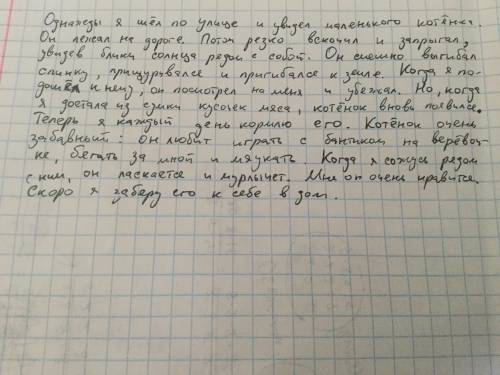 Однажды я шёл по улице и увидел маленького котёнка.
Он лежал на дороге. Потом резко вскочил и запрыгал,
увидев блики солнца рядом с собой. Он смешно выгибал
спинку, прищуривался и пригибался к земле. Когда я по-
дошёл к нему, он посмотрел на меня и убежал. Но, когда
я достала из сумки кусочек мяса, котёнок вновь появился.
Теперь я каждый день кормлю его. Котёнок очень
забавный: он любит играть с бантиком на верёвоч-
ке, бегать за мной и мяукать. Когда я сажусь рядом
с ним, он ласкается и мурлычет. Мне он очень нравится.
Скоро я заберу его к себе в дом.